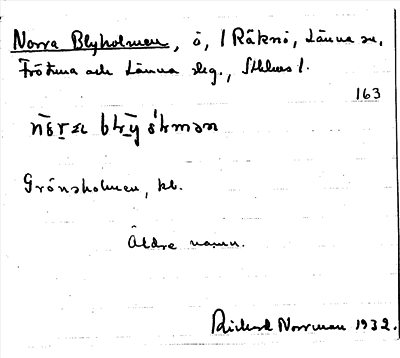 Norra Blyholmen, ö, / Räknö, Länna sn,
Frötuna och Länna slg., Sthlms l.
163
Grönsholmen, kl.
Äldre namn.
Rickard Norrman 1932.